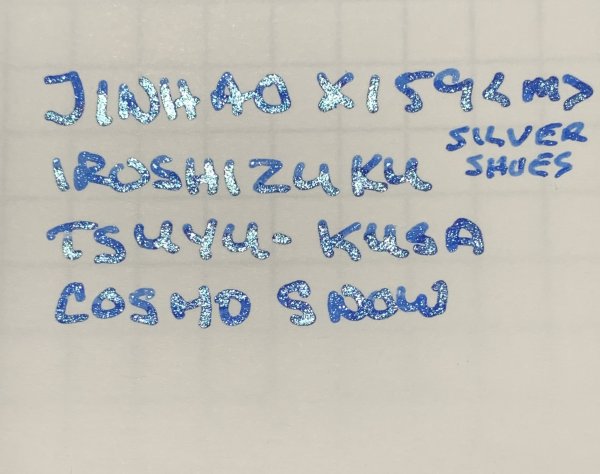 JINHAO X159 <M>
SILVER
SHOES
IROSHIZUKU
TSUYU-KUSA
COSMO SNOW